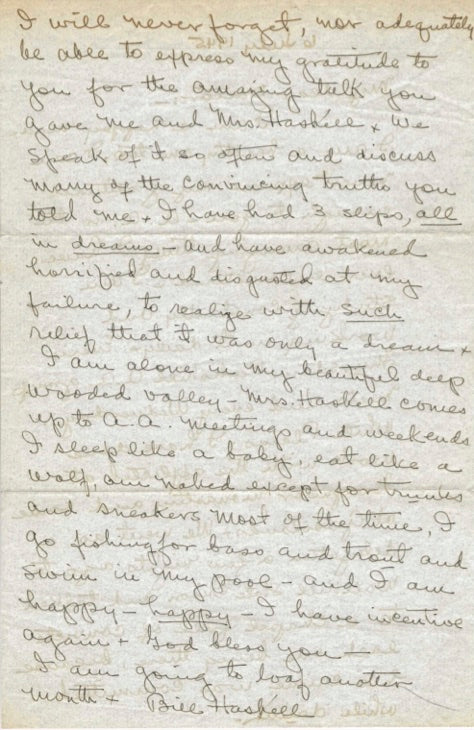 I will never forget, nor adequately
be able to express my gratitude to
you for the amazing talk you
gave me and Mrs. Haskell + We
speak of it so often and discuss
many of the convincing truths you
told me + I have had 3 slips, all
in dreams – and have awakened
horrified and disgusted at my
failure, to realize with such
relief that it was only a dream +
I am alone in my beautiful deep
wooded valley – Mrs. Haskell comes
up to A.A. meetings and weekends
I sleep like a baby, eat like a
wolf, am naked except for trunks
and sneakers most of the time, I
go fishing for bass and trout and
swim in my pool – and I am
happy – happy – I have incentive
again + God bless you –
I am going to loaf another
month + Bill Haskell